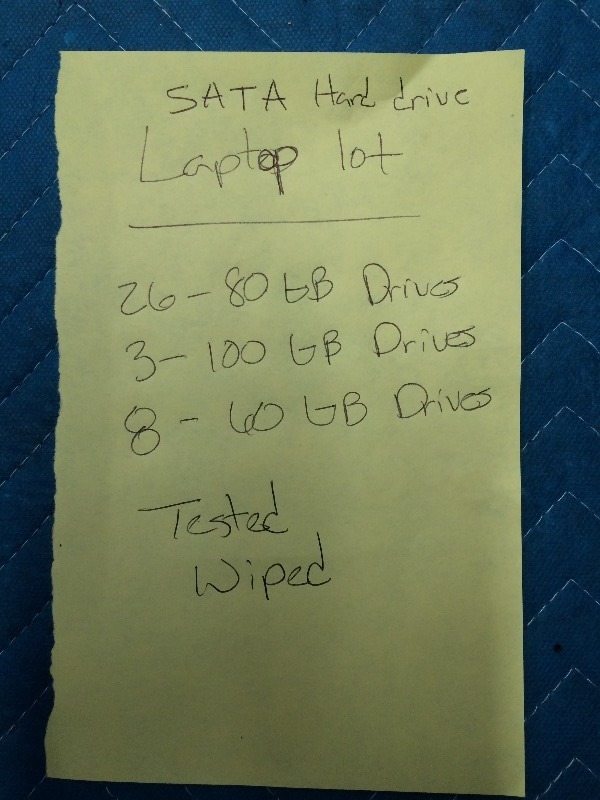 SATA Hard drive
Laptop lot
26 - 80 GB Drives
3 - 100 GB Drives
8 - 60 GB Drives
Tested
Wiped